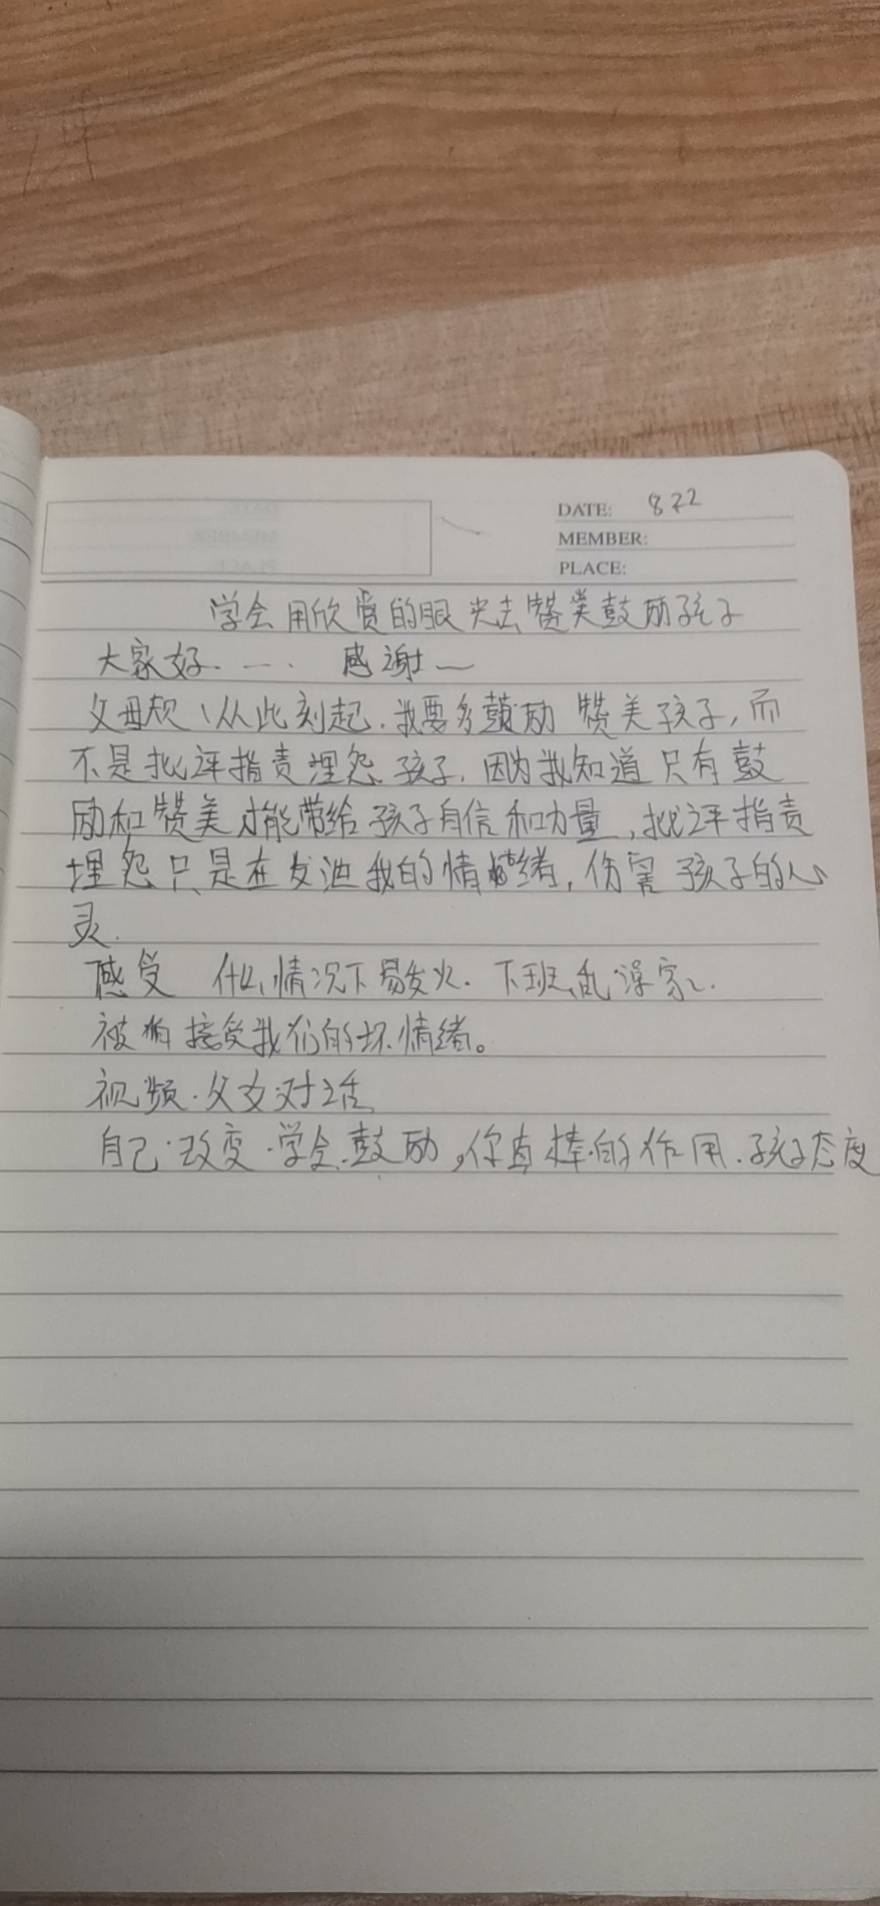 DATE: 822
MEMBER:
PLACE:
学会用欣赏的眼光去赞美鼓励孩子
大家好.一.. 感谢一
父母规 从此刻起.我要多鼓励 赞美孩子,而
不是批评指责埋怨孩子.因为我知道只有鼓
励和赞美才能带给孩子自信和力量,批评指责
埋怨只是在发泄我的情绪,伤害孩子的心
灵.
感受 什么情况下易发火.下班,乱 家.
被 接受我们的坏情绪。
视频.父女对话
自己改变.学会鼓励,你真棒的作用.孩子态度